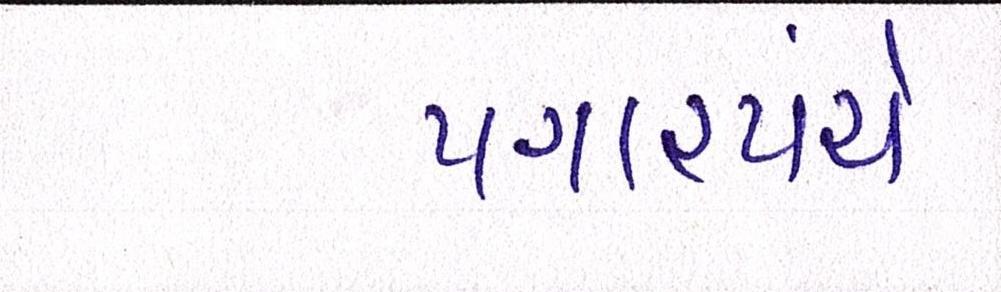 પગારપંચે